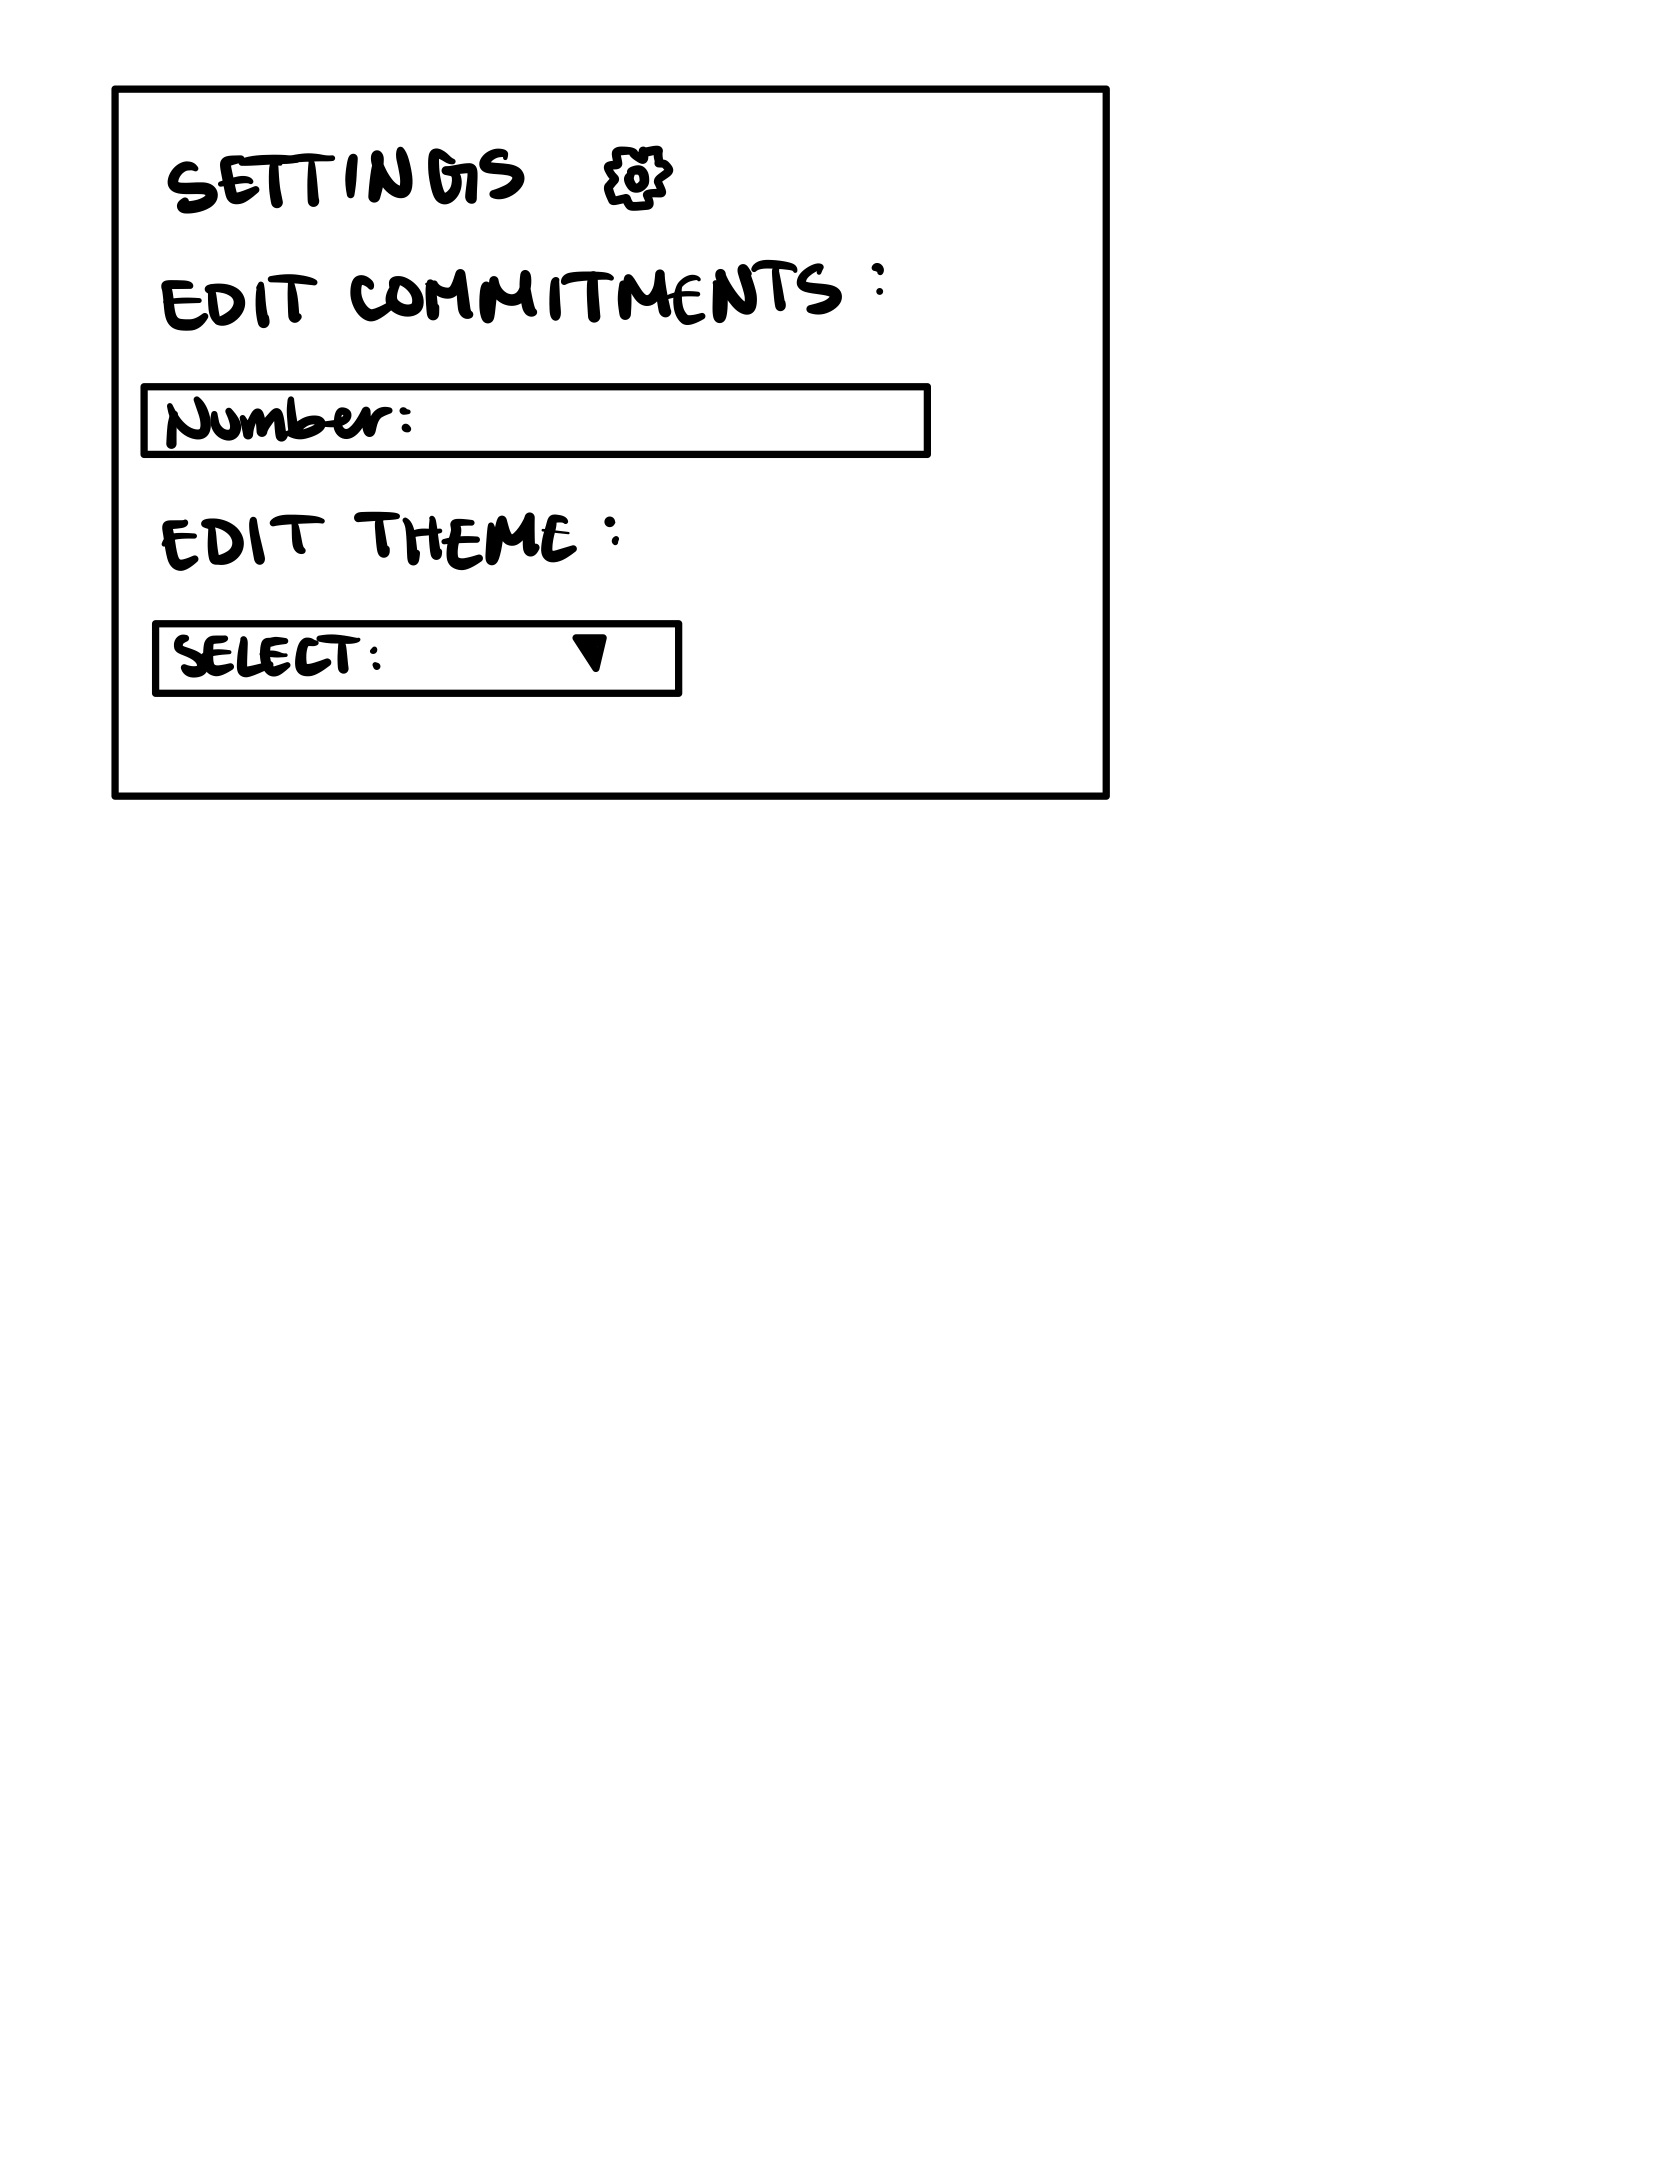 SETTINGS
EDIT COMMITMENTS :
Number:
EDIT THEME :
SELECT: